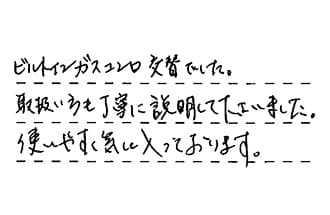 ビルトインガスコンロ交替でした。
取扱い方も丁寧に説明して下さいました。
使いやすく気に入っております。